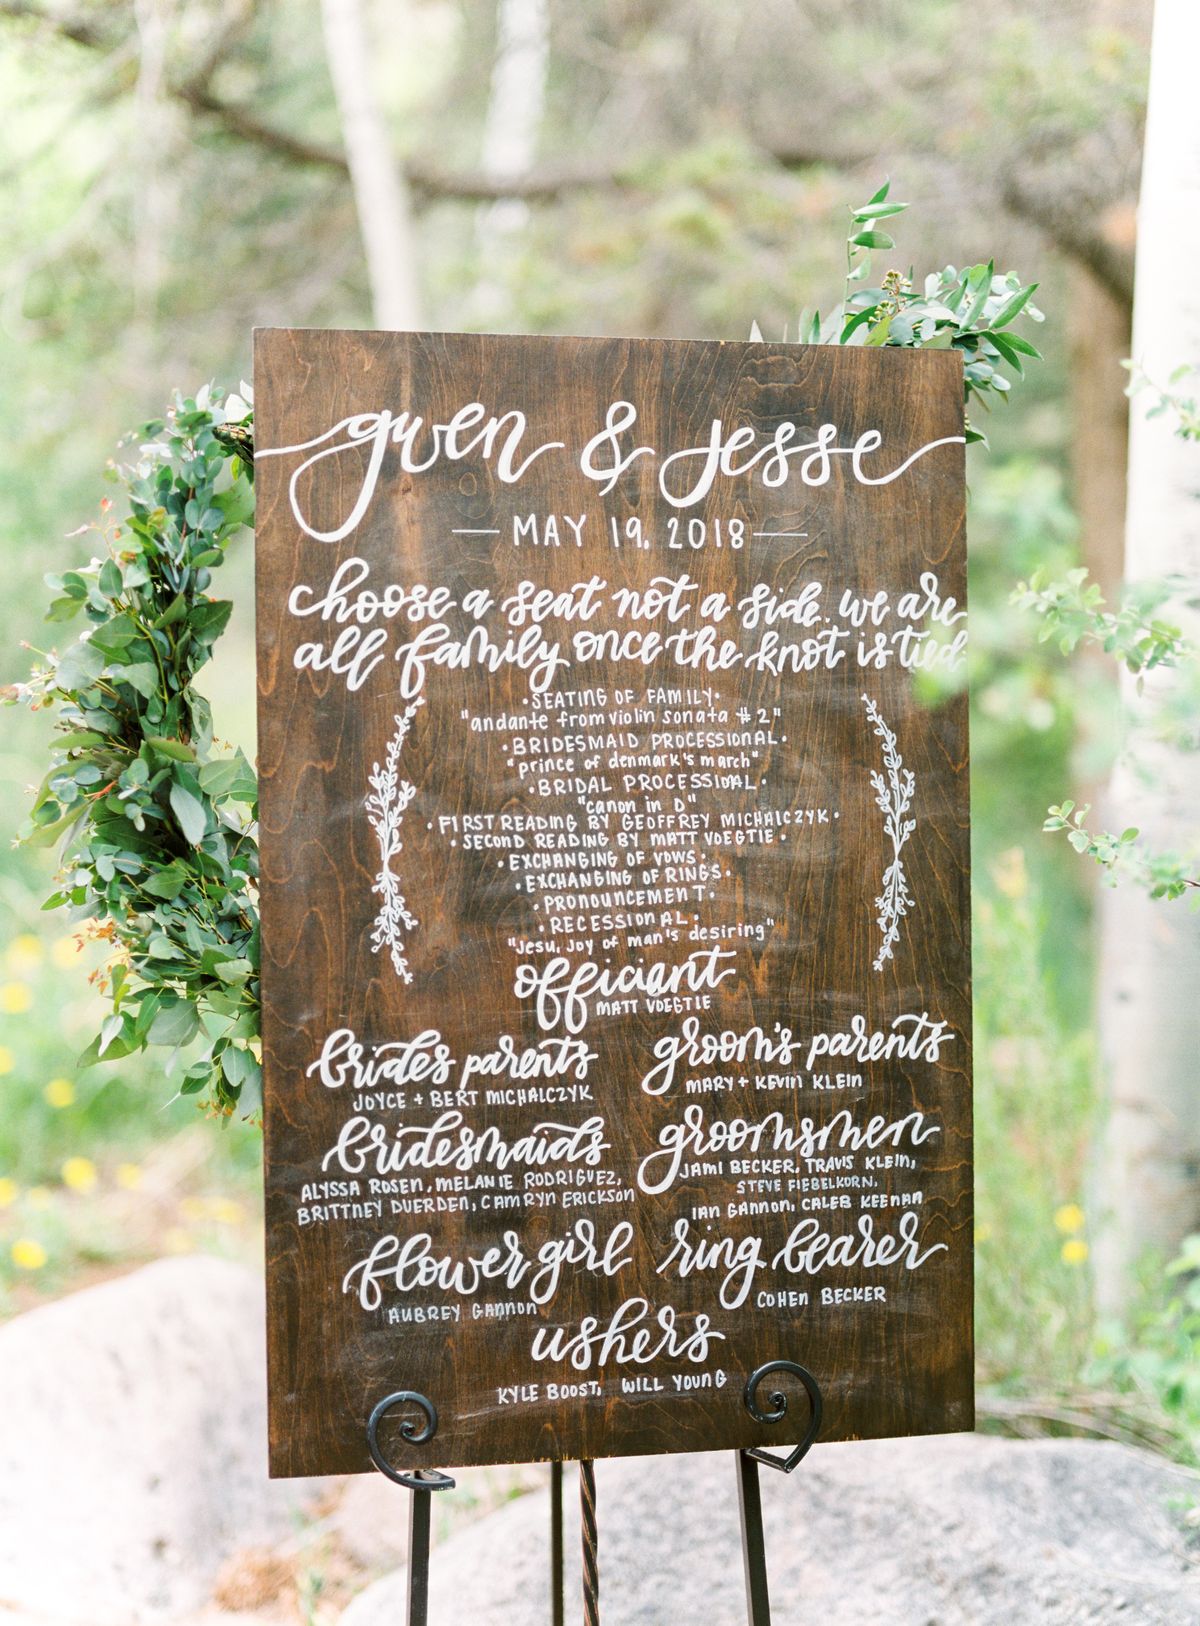 gwen & Jesse
MAY 19, 2018
choose a seat not a side. we are
all family once the knot is tied.
• SEATING OF FAMILY •
"andante from violin sonata #2"
• BRIDESMAID PROCESSIONAL •
"prince of denmark's march"
• BRIDAL PROCESSIONAL •
"canon in D"
• FIRST READING BY GEOFFREY MICHALCZYK •
• SECOND READING BY MATT VOEGTIE •
• EXCHANGING OF VOWS •
• EXCHANGING OF RINGS •
• PRONOUNCEMENT •
• RECESSIONAL •
"Jesu, Joy of man's desiring"
officiant
MATT VOEGTIE
brides parents
JOYCE + BERT MICHALCZYK
groom's parents
MARY + KEVIN KLEIN
bridesmaids
ALYSSA ROSEN, MELANIE RODRIGUEZ,
BRITTNEY DUERDEN, CAMRYN ERICKSON
groomsmen
JAMI BECKER, TRAVIS KLEIN,
STEVE FIEBELKORN,
IAN GANNON, CALEB KEENAN
flower girl
AUBREY GANNON
ring bearer
COHEN BECKER
ushers
KYLE BOOST, WILL YOUNG